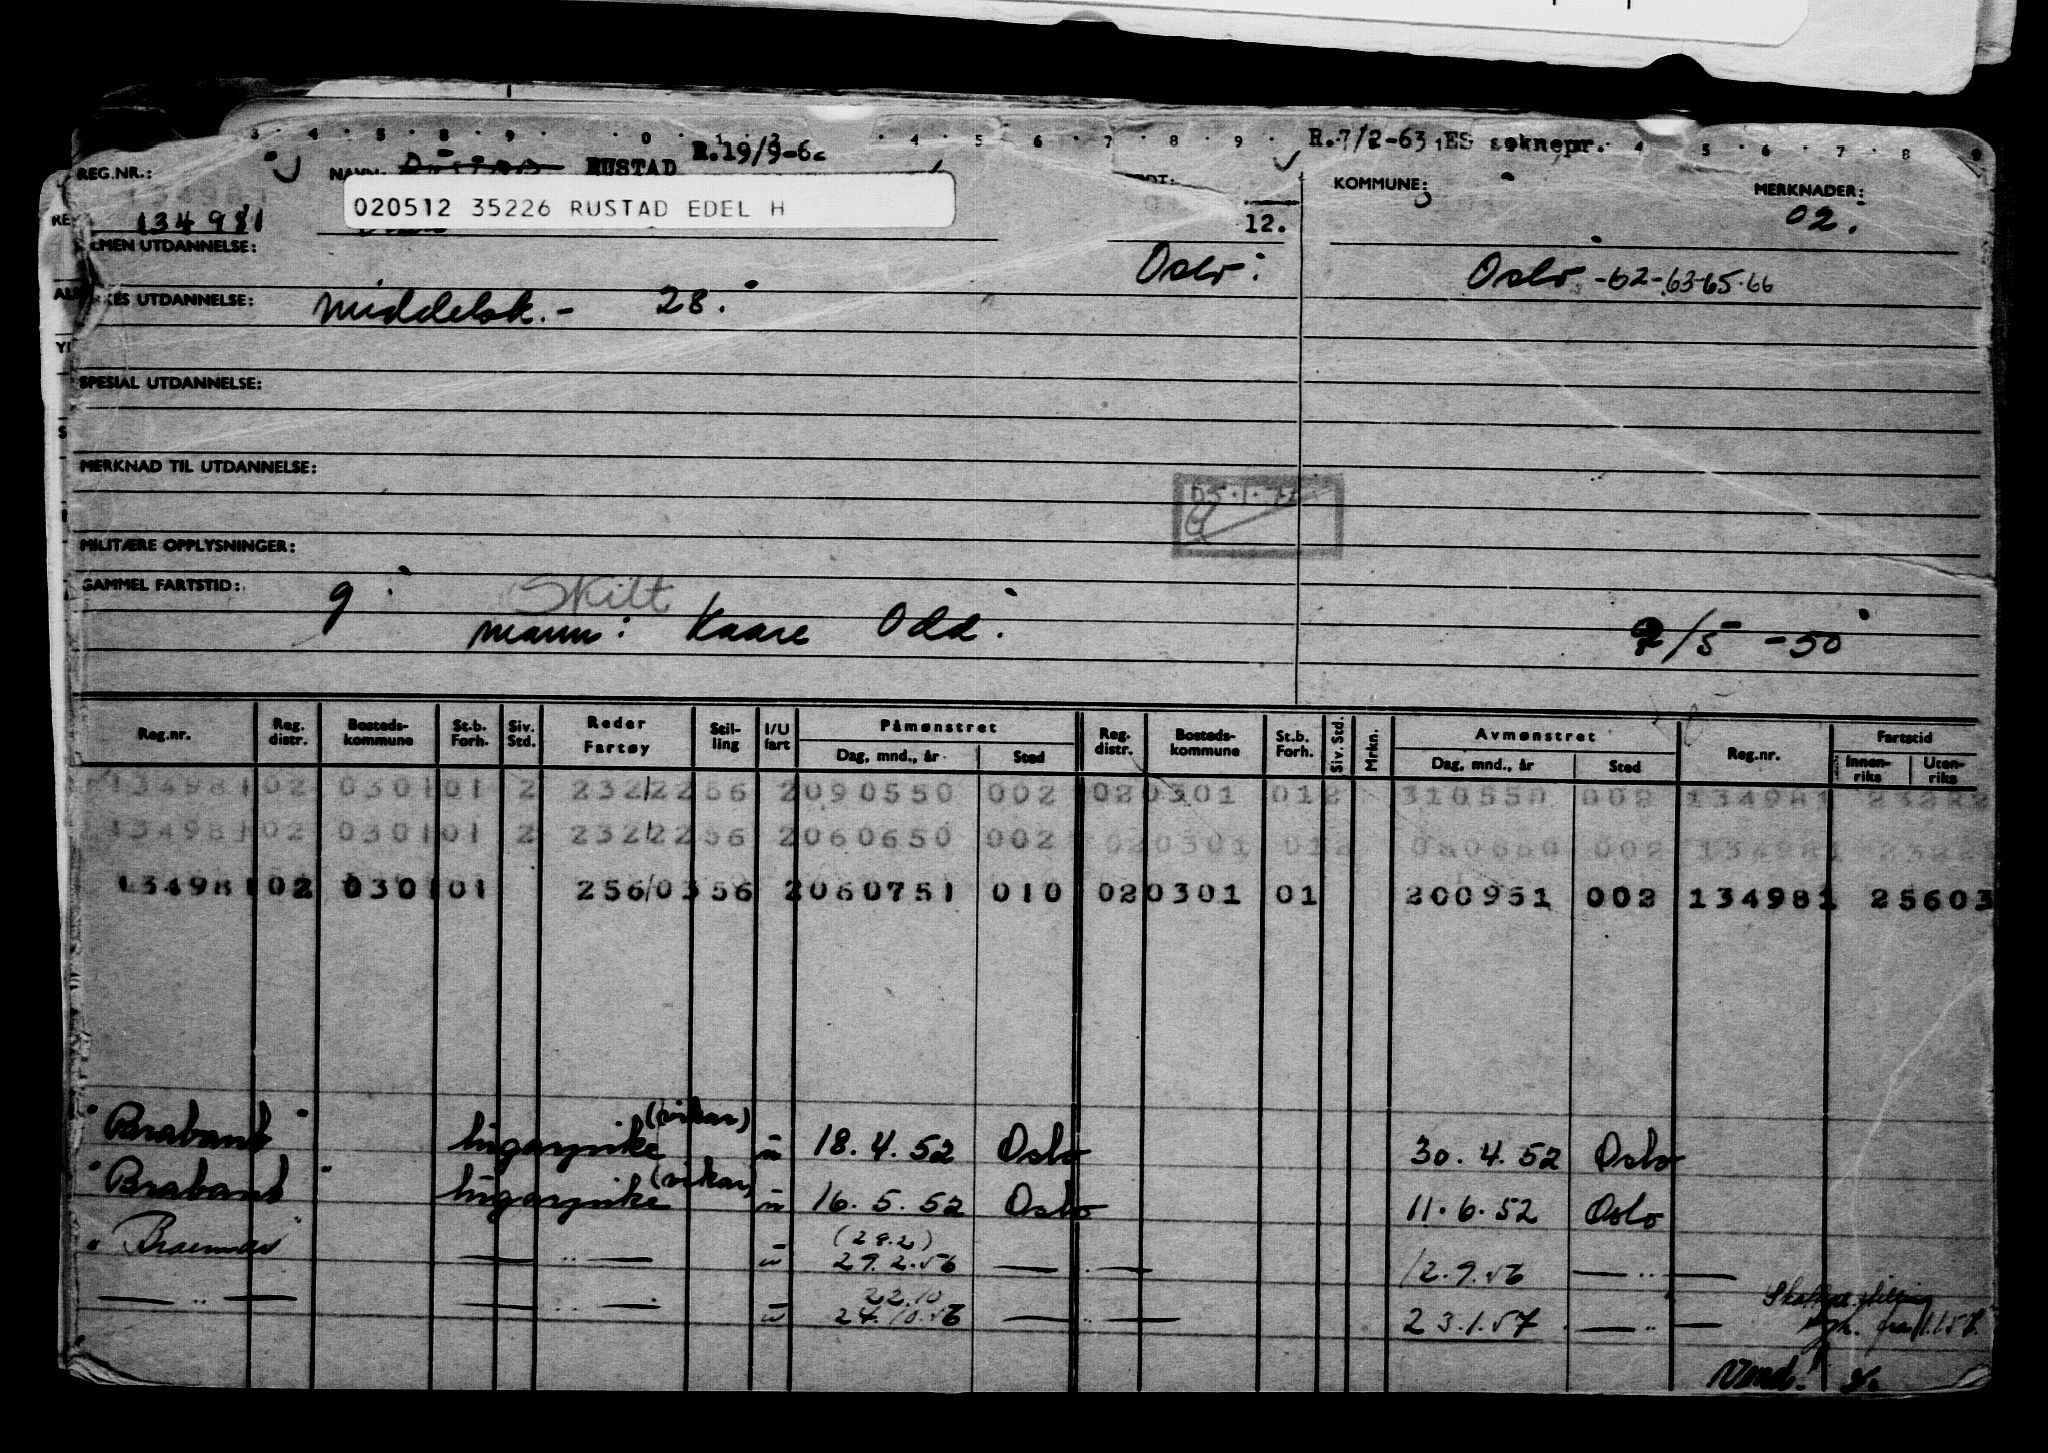 3 4 5 8 9 0 1 2 4 5 6 7 8 9 4 5 6 7 8 9
R.19/9-62 R.7/2-63 ES søknepr.
REG.NR.: NAVN: RUSTAD KOMMUNE: MERKNADER:
134981 020512 35226 RUSTAD EDEL H 12. 02.
ALMEN UTDANNELSE:
Oslo Oslo -62-63-65-66
YRKES UTDANNELSE: Middelsk. - 28.
SPESIAL UTDANNELSE:
MERKNAD TIL UTDANNELSE:
MILITÆRE OPPLYSNINGER:
GAMMEL FARTSTID: g Skilt
mann: Kaare Odd. 9/5 -50
Reg.nr. Reg. distr. Bosteds-kommune St.b. Forh. Siv. Std. Reder Fartøy Stil-ling I/U fart Påmønstret Dag, mnd., år Sted Reg. distr. Bosteds-kommune St.b. Forh. Siv. Std. Mrkn. Avmønstret Dag, mnd., år Sted Reg.nr. Fartstid Innen-riks Uten-riks
134981 02 0301 01 2 232/22 56 2 090550 002 02 0301 01 2 310550 002 134981 23222
134981 02 0301 01 2 232/22 56 2 060650 002 02 0301 01 2 080650 002 134981 2322
134981 02 0301 01 256/03 56 2 060751 010 02 0301 01 200951 002 134981 25603
"Brabant" lugarpike (vikar) u 18.4.52 Oslo 30.4.52 Oslo
"Brabant" lugarpike (vikar) u 16.5.52 Oslo 11.6.52 Oslo
"Braemar" — " — u (28.2) 29.2.56 — " — 12.9.56 — " —
— " — — " — u 22.10 24.10.56 — " — 23.1.57 — " — fra 1.1.57
Vend!